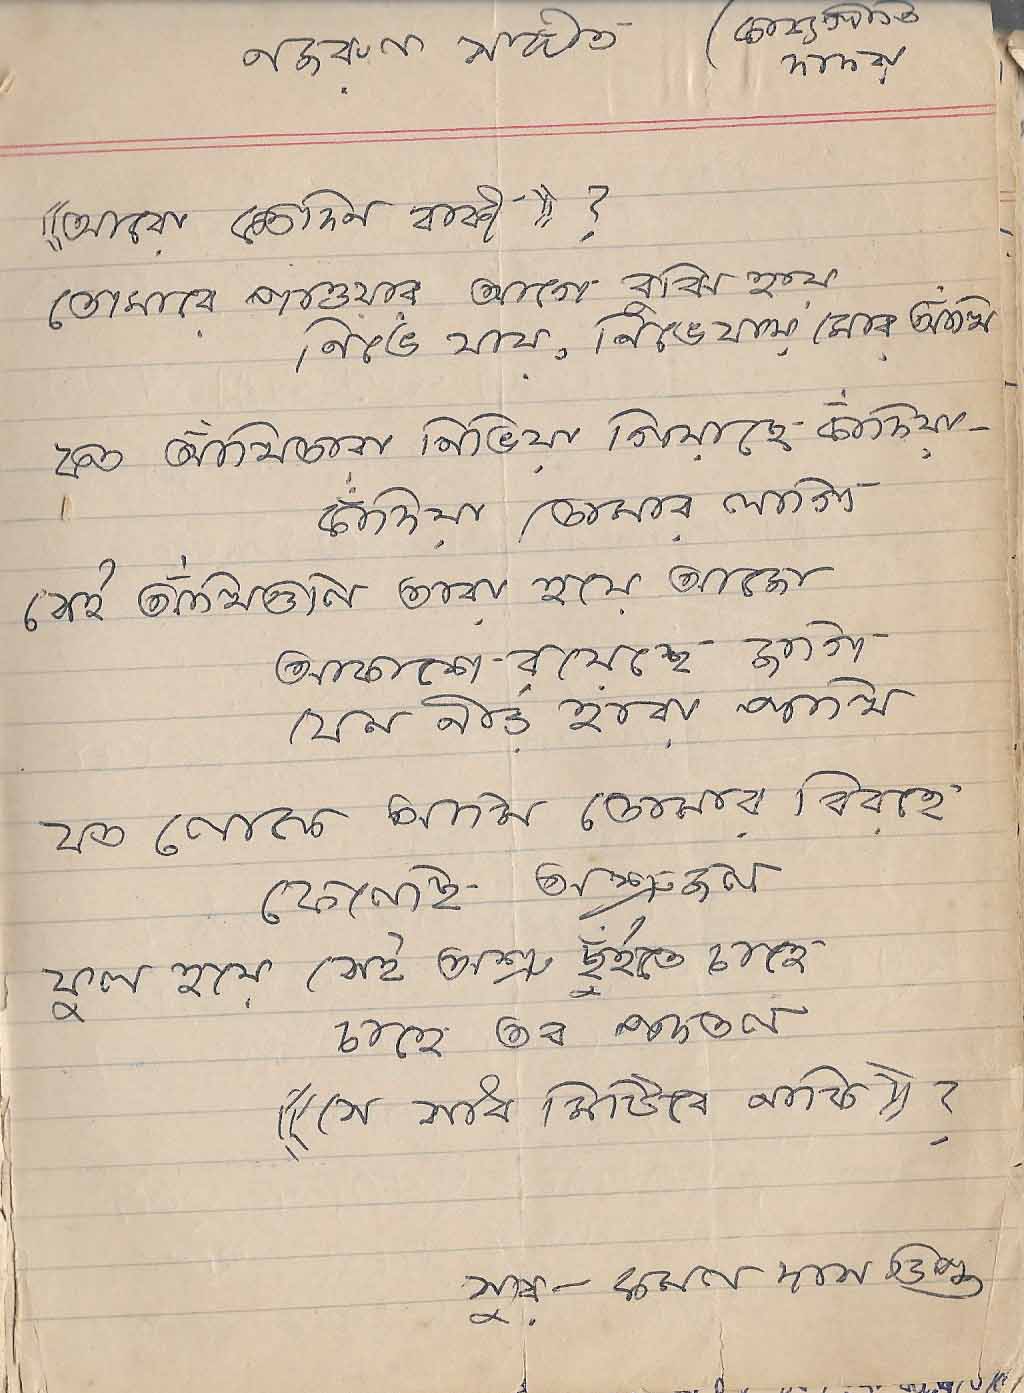 নজরুল সঙ্গীত
দাদরা
((আরো কতদিন বাকী)) ?
তোমারে পাওয়ার আগে বুঝি হায়
নিভে যায়, নিভে যায় মোর আঁখি
কত আঁখিতারা নিভিয়া গিয়াছে কাঁদিয়া-
কাঁদিয়া তোমার লাগি
সেই আঁখিগুলি তারা হয়ে আজো
আকাশে রয়েছে জাগি
যেন নীড় হারা পাখি
যত লোকে আমি তোমার বিরহে
ফেলেছি অশ্রুজল
ফুল হয়ে সেই অশ্রু ছুঁইতে চাহে
চাহে তব পদতল
((সে সাধ মিটিবে নাকি)) ?
সুর - কমল দাস গুপ্ত